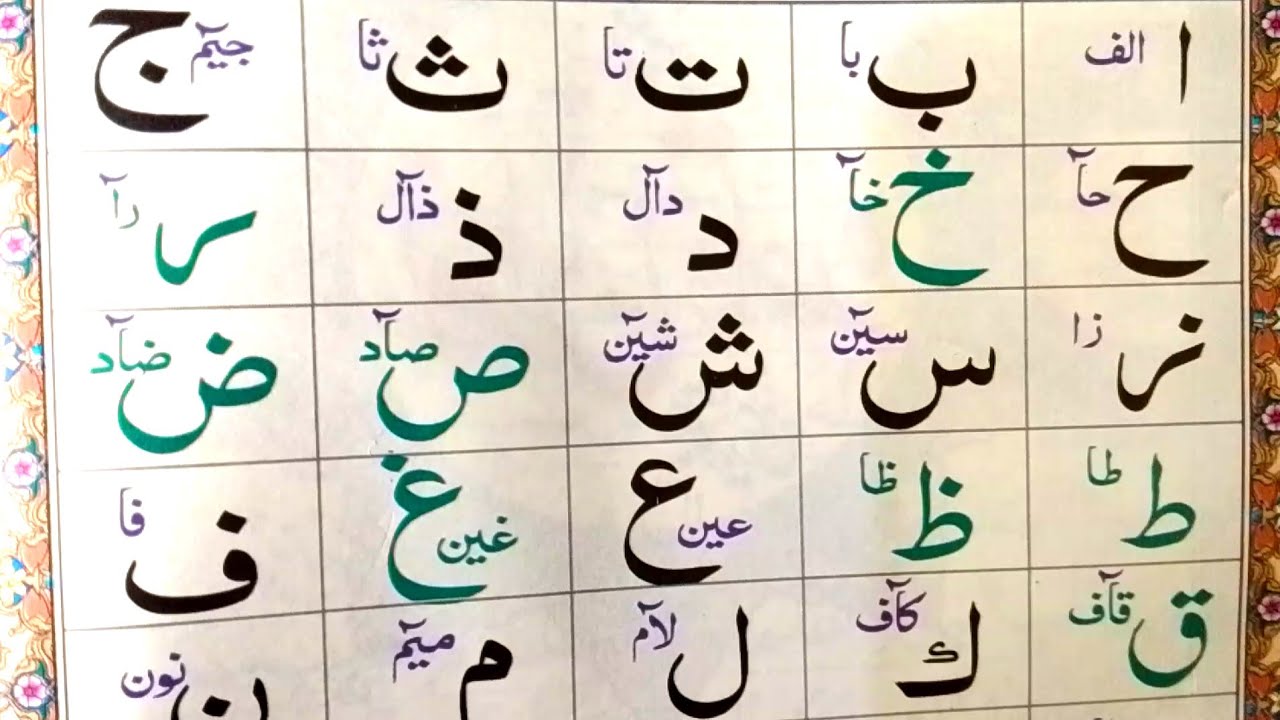 ا الف ب با ت تا ث ثا ج جیٓم
ح حآ خ خآ د دآل ذ ذآل ر رآ
ز زا س سیٓن ش شیٓن ص صآد ض ضآد
ط طا ظ ظا ع عین غ غین ف فا
ق قآف ك کآف ل لآم م میٓم ن نون